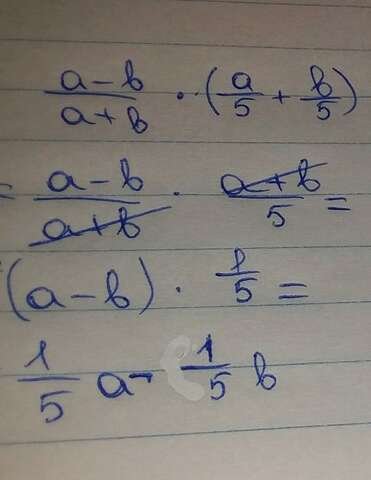 a-b/a+b · (a/5 + b/5)
= a-b/a+b · a+b/5 =
(a-b) · 1/5 =
1/5 a - 1/5 b